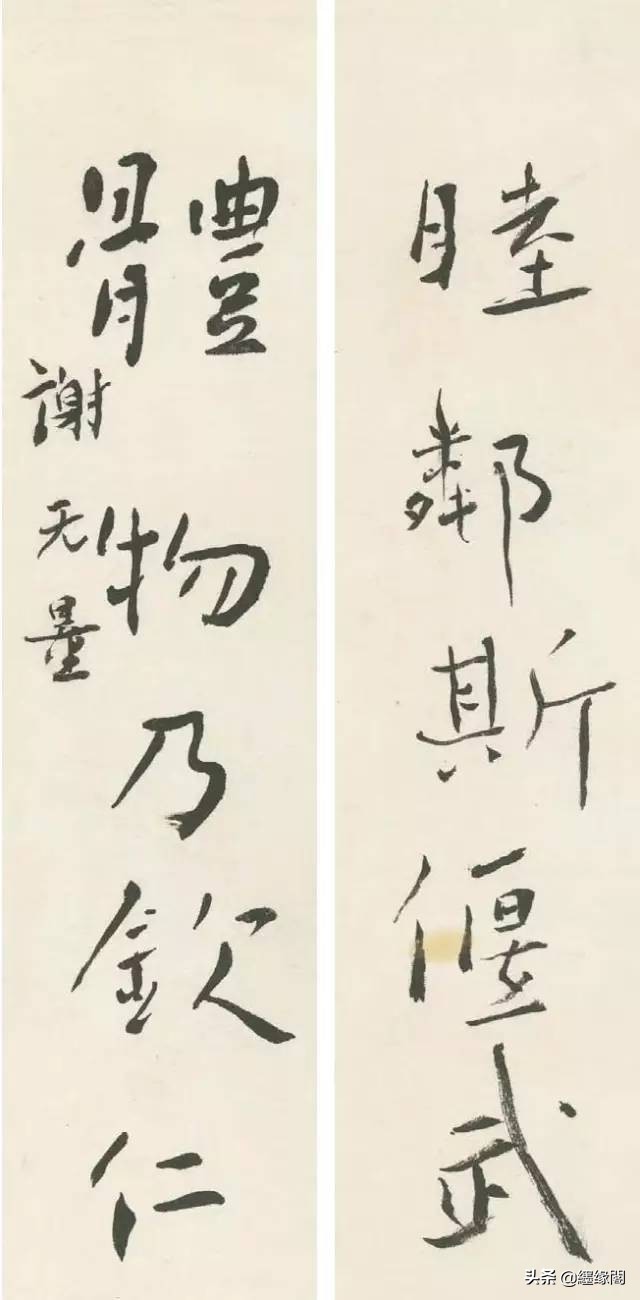 睦鄰斯偃武
體物乃欽仁
謝无量
头条 @纒缘閣